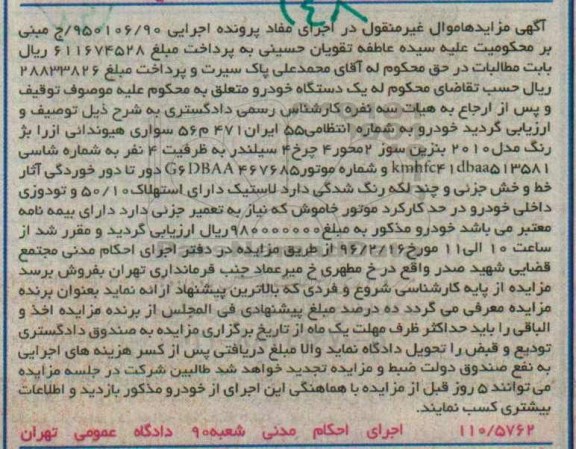 آگهی مزایدهاموال غیرمنقول در اجرای مفاد پرونده اجرایی ۹۵۰۱۰۶/۹۰/ج مبنی
بر محکومیت علیه سیده عاطفه تقویان حسینی به پرداخت مبلغ ۶۱۱۶۷۴۵۲۸ ریال
بابت مطالبات در حق محکوم له آقای محمدعلی پاک سیرت و پرداخت مبلغ ۲۸۸۳۳۸۲۶
ریال حسب تقاضای محکوم له یک دستگاه خودرو متعلق به محکوم علیه موصوف توقیف
و پس از ارجاع به هیات سه نفره کارشناس رسمی دادگستری به شرح ذیل توصیف و
ارزیابی گردید خودرو به شماره انتظامی۵۵ ایران۴۷۱ م۵۶ سواری هیوندائی ازرا بژ
رنگ مدل۲۰۱۰ بنزین سوز ۲محور۴ چرخ۴ سیلندر به ظرفیت ۴ نفر به شماره شاسی
kmhfc۴۱dbaa۵۱۳۵۸۱ و شماره موتور۴۶۷۶۸۵ G۶DBAA دور تا دور خوردگی آثار
خط و خش جزئی و چند لکه رنگ شدگی دارد لاستیک دارای استهلاک۵۰/۱۰ و تودوزی
داخلی خودرو در حد کارکرد موتور خاموش که نیاز به تعمیر جزئی دارد دارای بیمه نامه
معتبر می باشد خودرو مذکور به مبلغ۹۸۰۰۰۰۰۰۰ریال ارزیابی گردید و مقرر شد از
ساعت ۱۰ الی۱۱ مورخ۹۶/۲/۱۶ از طریق مزایده در دفتر اجرای احکام مدنی مجتمع
قضایی شهید صدر واقع در خ مطهری خ میرعماد جنب فرمانداری تهران بفروش برسد
مزایده از پایه کارشناسی شروع و فردی که بالاترین پیشنهاد ارائه نماید بعنوان برنده
مزایده معرفی می گردد ده درصد مبلغ پیشنهادی فی المجلس از برنده مزایده اخذ و
الباقی را باید حداکثر ظرف مهلت یک ماه از تاریخ برگزاری مزایده به صندوق دادگستری
تودیع و قبض را تحویل دادگاه نماید والا مبلغ دریافتی پس از کسر هزینه های اجرایی
به نفع صندوق دولت ضبط و مزایده تجدید خواهد شد طالبین شرکت در جلسه مزایده
می توانند ۵ روز قبل از مزایده با هماهنگی این اجرای از خودرو مذکور بازدید و اطلاعات
بیشتری کسب نمایند.
۱۱۰/۵۷۶۲ اجرای احکام مدنی شعبه۹۰ دادگاه عمومی تهران